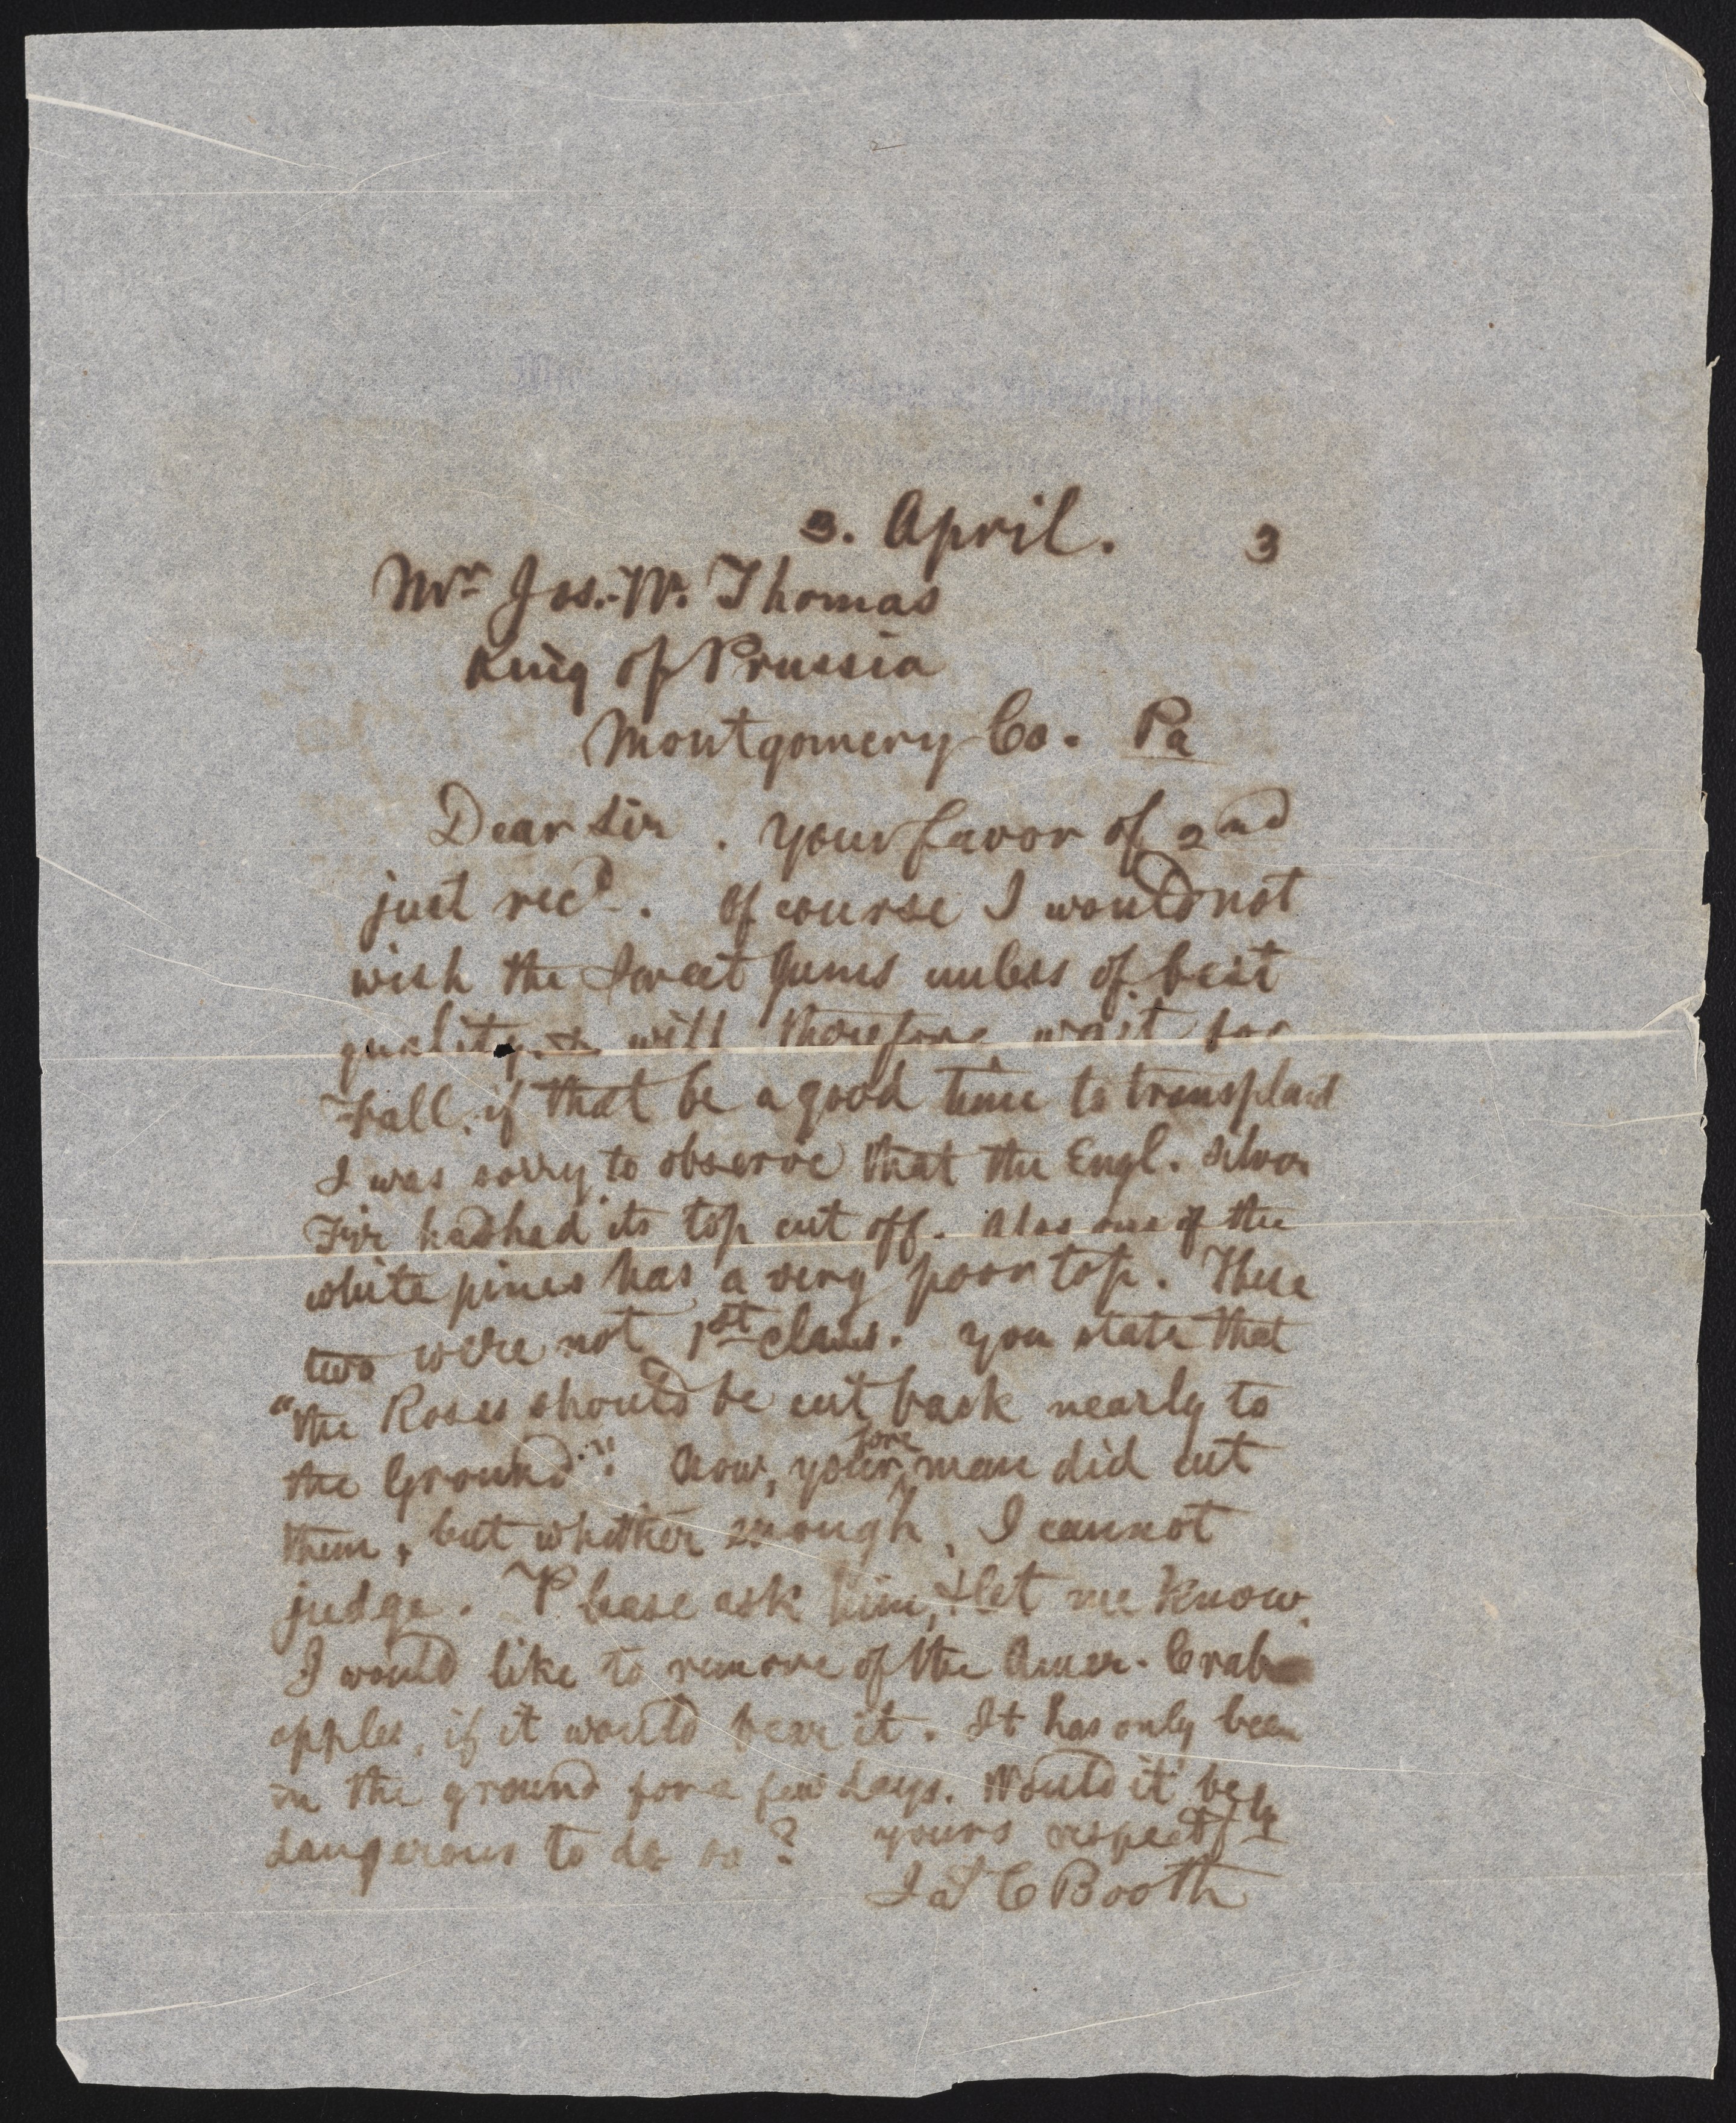 3. April. 3
Mr Jos. W. Thomas
King of Prussia
Montgomery Co. Pa
Dear Sir. Your favor of 2nd
just recd. Of course I would not
wish the Sweet Gums unless of best
quality, & will therefore wait for
Fall, if that be a good time to transplant
I was sorry to observe that the Engl. Silver
Fir had had its top cut off. Also one of the
white pines has a very poor top. These
two were not 1st class. You state that
"the Roses should be cut back nearly to
the Ground". Now, your foreman did cut
them, but whether enough, I cannot
judge. Please ask him, & let me Know.
I would like to remove of the Amer. Crab
apples, if it would bear it. It has only been
in the ground for a few days. Would it be
dangerous to do so? Yours respectfly
Jas C Booth